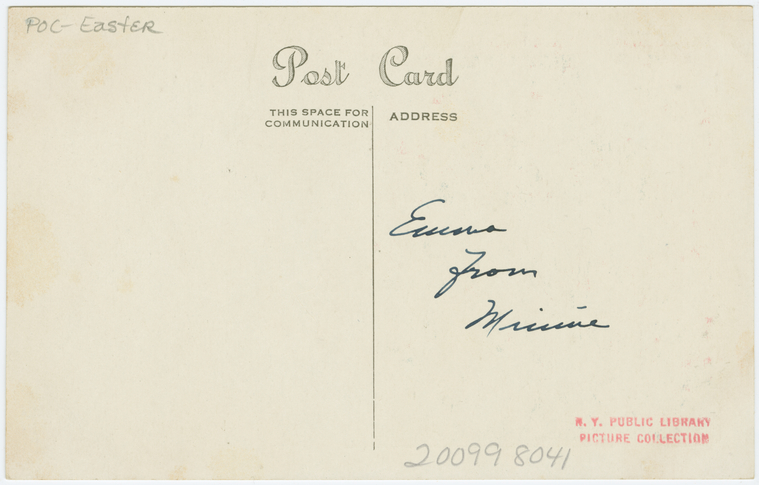 POC-Easter
Post Card
THIS SPACE FOR
COMMUNICATION
ADDRESS
Emma
from
Minnie
N. Y. PUBLIC LIBRARY
PICTURE COLLECTION
200998041